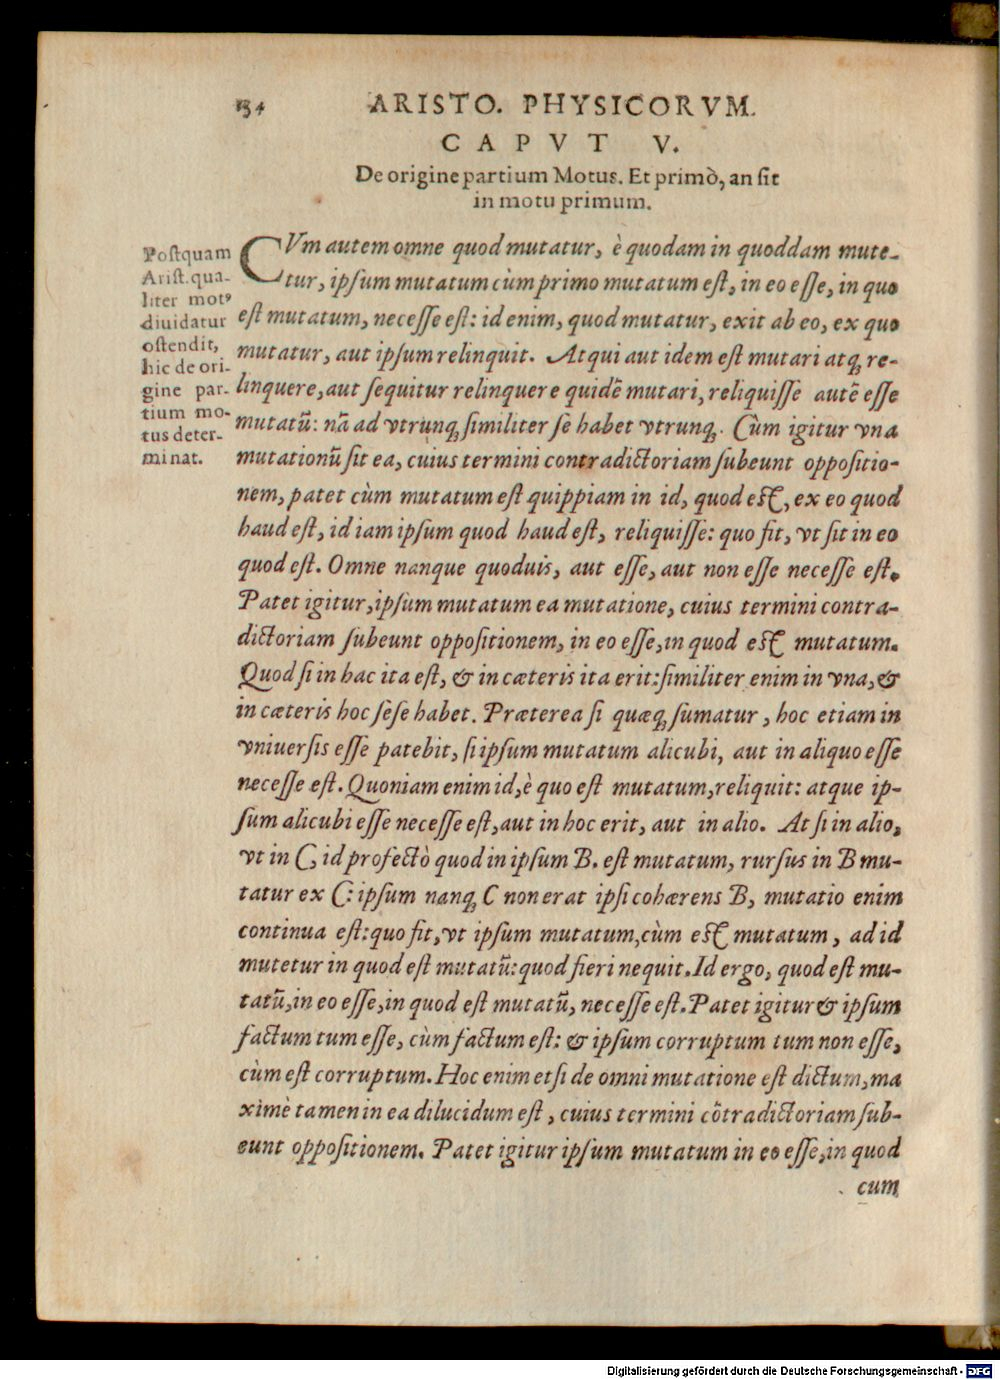 154 ARISTO. PHYSICORVM.
CAPVT V.
De origine partium Motus. Et primò, an sit
in motu primum.
Postquam
Arist. qua-
liter motꝰ
diuidatur
ostendit,
hic de ori-
gine par-
tium mo-
tus deter-
minat.
CVm autem omne quod mutatur, è quodam in quoddam mute-
tur, ipsum mutatum cùm primo mutatum est, in eo esse, in quo
est mutatum, necesse est: id enim, quod mutatur, exit ab eo, ex quo
mutatur, aut ipsum relinquit. Atqui aut idem est mutari atq; re-
linquere, aut sequitur relinquere quidē mutari, reliquisse autē esse
mutatū: nā ad vtrunq; similiter se habet vtrunq;. Cùm igitur vna
mutationū sit ea, cuius termini contradictoriam subeunt oppositio-
nem, patet cùm mutatum est quippiam in id, quod est, ex eo quod
haud est, id iam ipsum quod haud est, reliquisse: quo fit, vt sit in eo
quod est. Omne nanque quoduis, aut esse, aut non esse necesse est.
Patet igitur, ipsum mutatum ea mutatione, cuius termini contra-
dictoriam subeunt oppositionem, in eo esse, in quod est mutatum.
Quod si in hac ita est, & in cæteris ita erit: similiter enim in vna, &
in cæteris hoc sese habet. Præterea si quæq; sumatur, hoc etiam in
vniuersis esse patebit, si ipsum mutatum alicubi, aut in aliquo esse
necesse est. Quoniam enim id, è quo est mutatum, reliquit: atque ip-
sum alicubi esse necesse est, aut in hoc erit, aut in alio. At si in alio,
vt in C, id profectò quod in ipsum B. est mutatum, rursus in B mu-
tatur ex C: ipsum nanq; C non erat ipsi cohærens B, mutatio enim
continua est: quo fit, vt ipsum mutatum, cùm est mutatum, ad id
mutetur in quod est mutatū: quod fieri nequit. Id ergo, quod est mu-
tatū, in eo esse, in quod est mutatū, necesse est. Patet igitur & ipsum
factum tum esse, cùm factum est: & ipsum corruptum tum non esse,
cùm est corruptum. Hoc enim etsi de omni mutatione est dictum, ma
ximè tamen in ea dilucidum est, cuius termini cōtradictoriam sub-
eunt oppositionem. Patet igitur ipsum mutatum in eo esse, in quod
cum
Digitalisierung gefördert durch die Deutsche Forschungsgemeinschaft - DFG